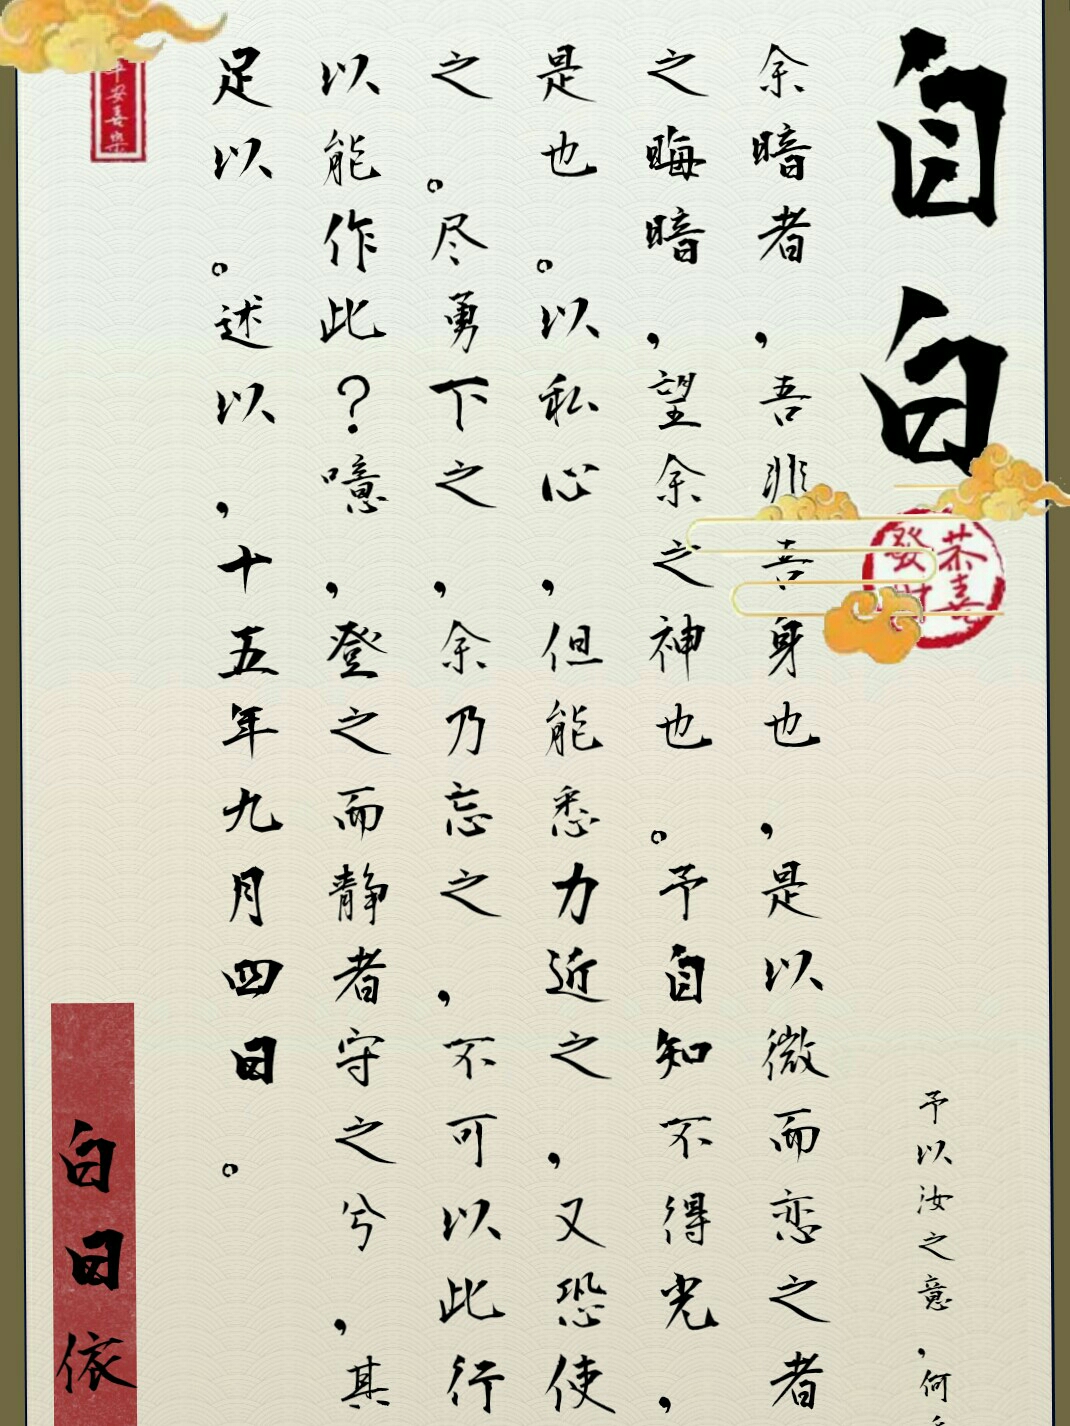 自白
恭喜發財
予以汝之意，何
余暗者，吾非吾身也，是以微而恋之者
之晦暗，望余之神也。予自知不得光，
是也。以私心，但能悉力近之，又恐使
之。尽勇下之，余乃忘之，不可以此行
以能作此？噫，登之而静者守之兮，其
足以。述以，十五年九月四日。
平安喜樂
白日依